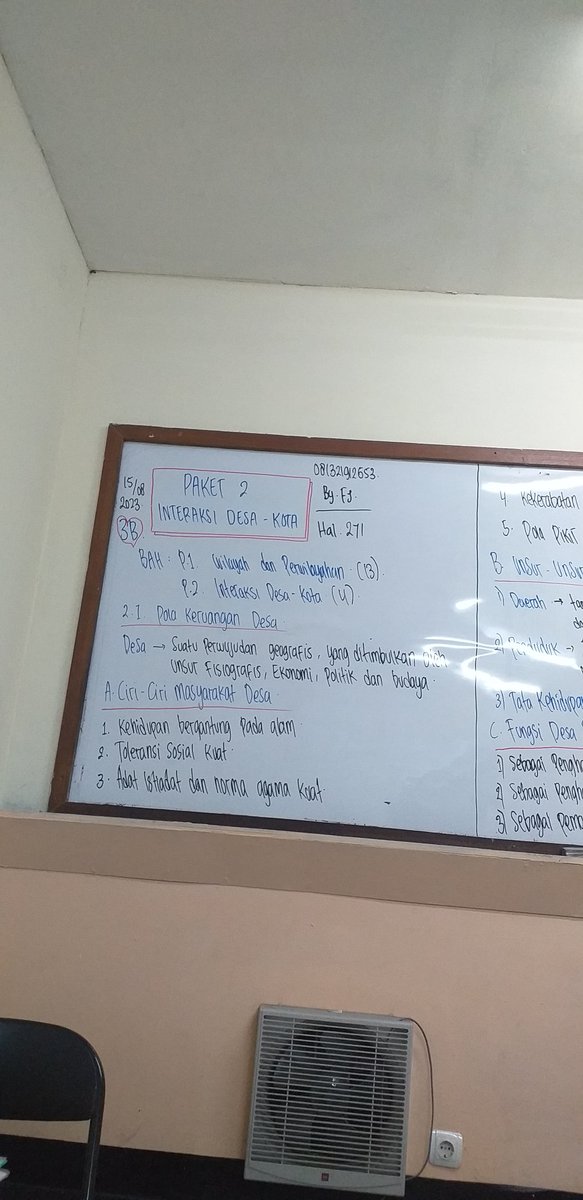 15/08
2023
3B
PAKET 2
INTERAKSI DESA - KOTA
081321912653
By. FJ.
Hal. 271
BAH : P.1. Wilayah dan Perwilayahan. (13).
P.2. Interaksi Desa-Kota (4).
2.1 Pola Keruangan Desa.
Desa → Suatu Perwujudan geografis, yang ditimbulkan oleh
unsur Fisiografis, Ekonomi, Politik dan budaya.
A. Ciri-Ciri Masyarakat Desa.
1. Kehidupan bergantung Pada alam.
2. Toleransi Sosial Kuat.
3. Adat Istiadat dan norma agama Kuat.
4 Kekerabatan
5. Pola Pikir
B. Unsur-Unsur
1) Daerah →
2) Penduduk →
3) Tata Kehidupan
C. Fungsi Desa
1) Sebagai
2) Sebagai
3) Sebagai